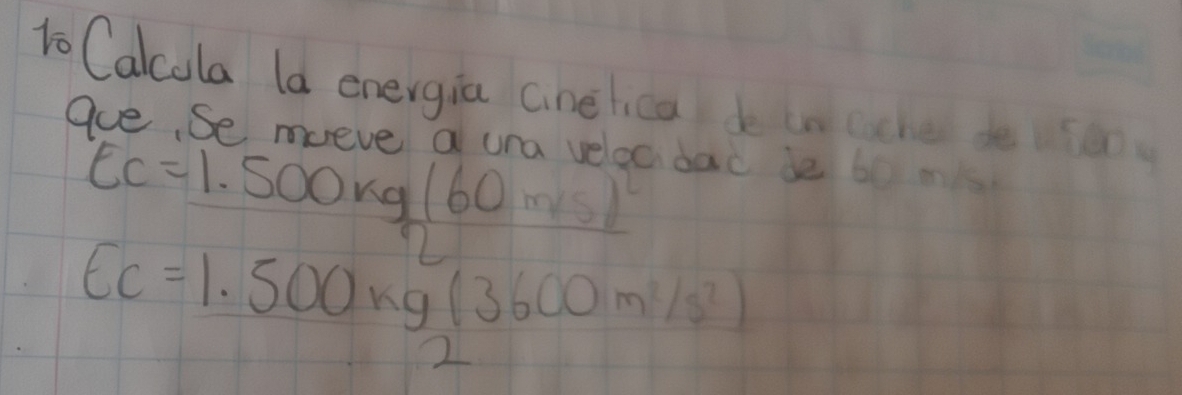 10 Calcula la energía cinética de un coche de 1.500
que se mueve a una velocidad de 60 m/s.
Ec = 1.500 kg (60 m/s)²
2
Ec = 1.500 kg (3600 m²/s²)
2